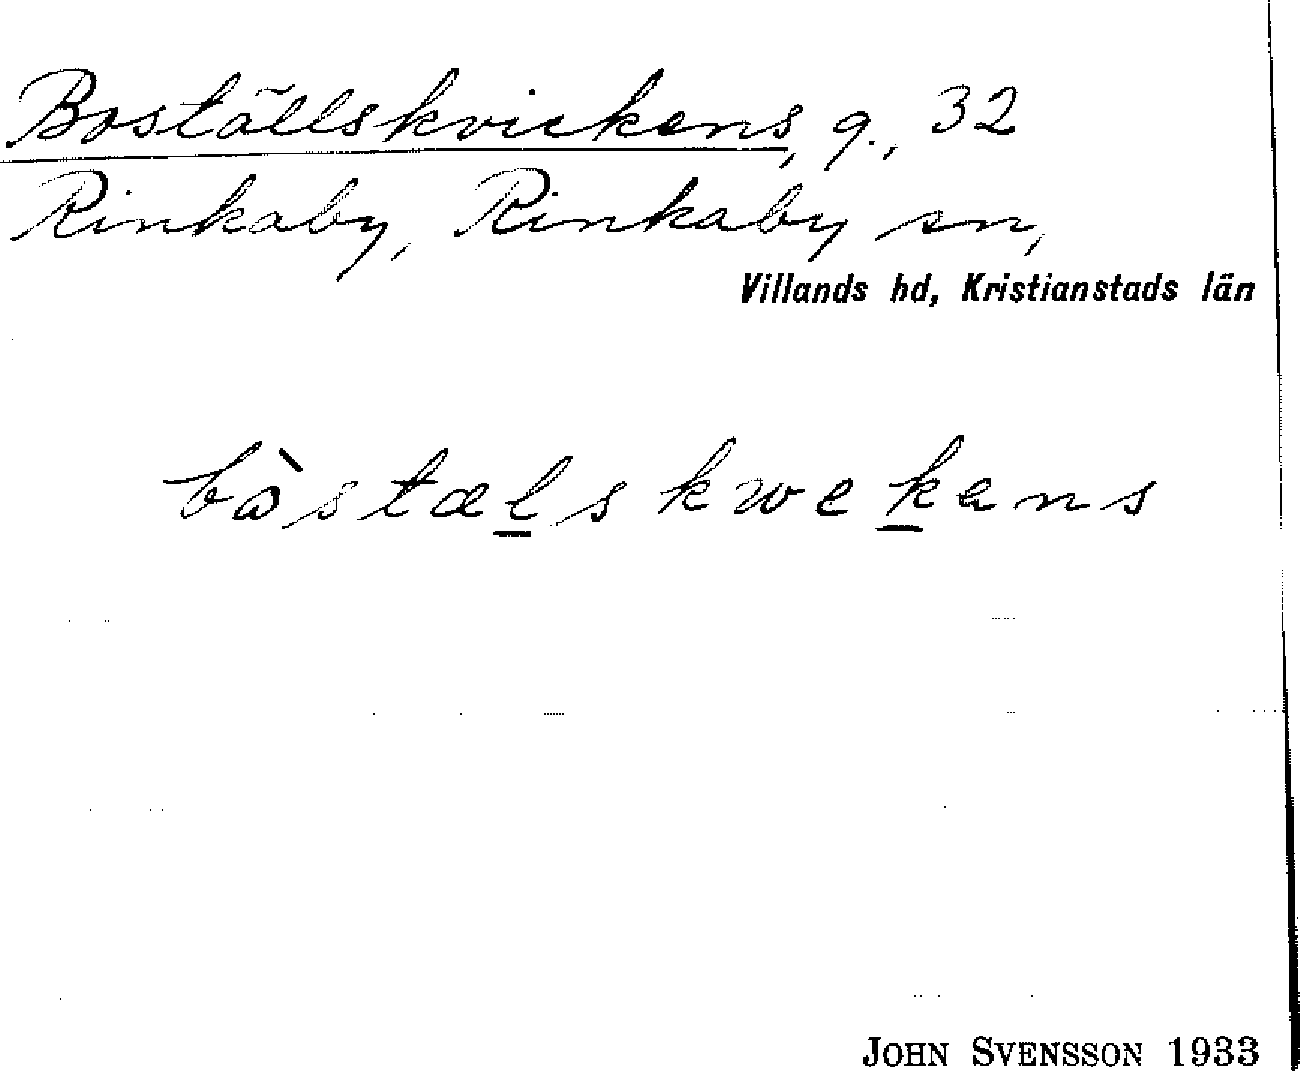 Boställskvickens, g., 32
Rinkaby, Rinkaby sn,
Villands hd, Kristianstads län
bòstælskwekens
JOHN SVENSSON 1933